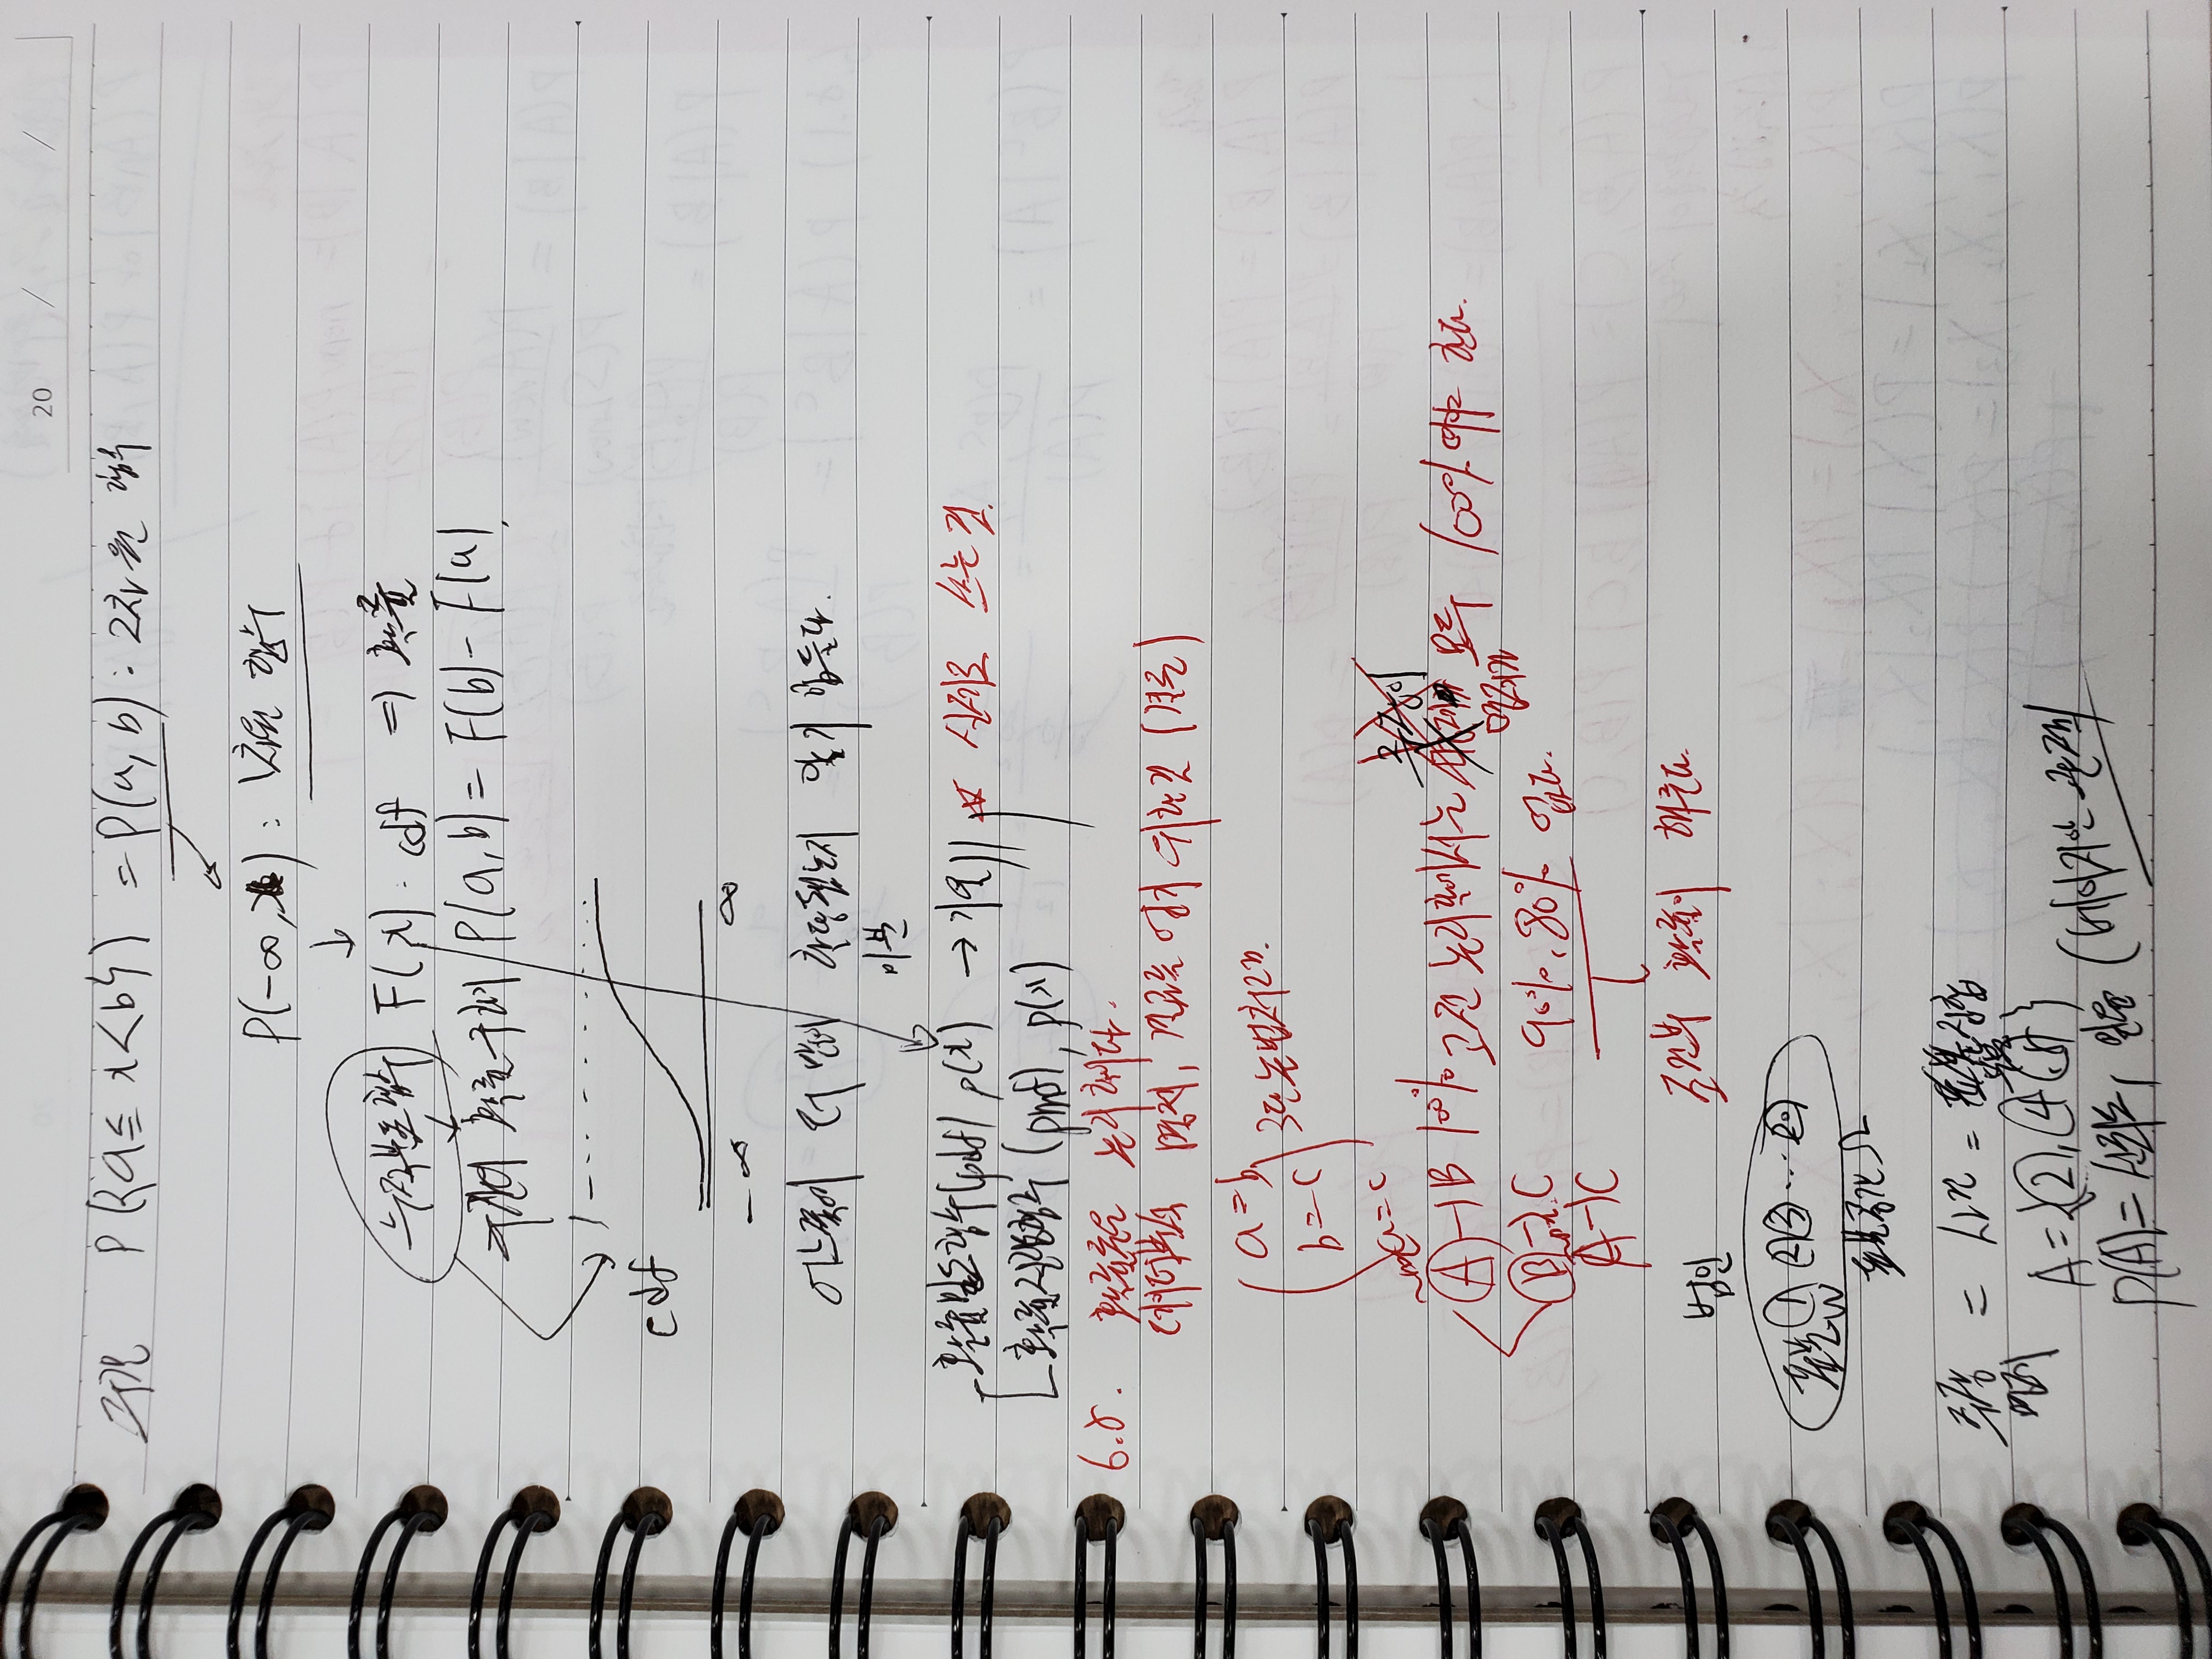 20 / /
구간 P({a ≤ x < b}) = P(a, b) : 2차원 함수
P(-∞, x) : 1차원 함수
누적분포함수 F(x) : cdf ⇒ 확률
구간의 확률 구하기 P(a, b) = F(b) - F(a).
1
cdf
-∞ ∞
어느쪽에 더 많이 할당됐는지 알기 힘들다.
미분
확률밀도함수(pdf) p(x) → 기울기 * 실제로 쓰는것.
확률질량함수 (pmf), p(x)
6.5. 확률론은 논리학이다.
데이터분석 명제, 결론을 얻기 위한것 (결론)
a = b
b = c 3단논법처럼.
a = c
A → B 100% 고전 논리학에서는 명제가 모두 100% 여야 한다.
B → C 90%, 80% 없다.
A → C
조건부 확률이 해준다.
범인
표본 1 2 3 ... 20
표본공간 Ω
주장 = 사건 = 부분집합
명제
A = {2, 4, 5}
P(A) = 신뢰도, 믿음 (베이지안 관점)